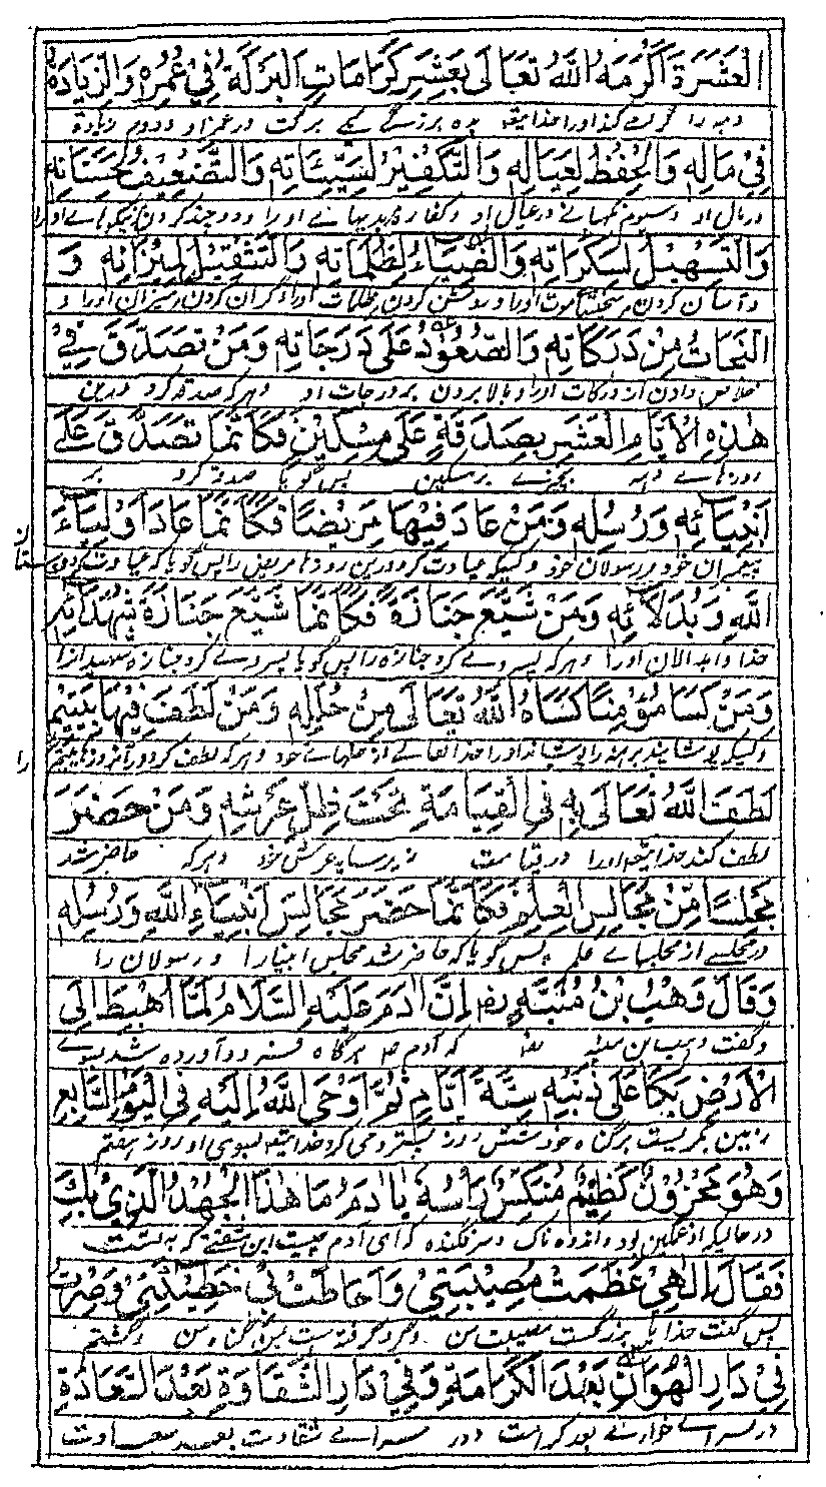 الْعَشَرَةَ اَكْرَمَهُ اللّٰهُ تَعَالَى بِعَشْرِ كَرَامَاتٍ اَلْبَرَكَةُ فِيْ عُمُرِهٖ وَالزِّيَادَةُ
در عمر او و دوم زیادة
فِيْ مَالِهٖ وَالْحِفْظُ لِعَيَالِهٖ وَالتَّكْفِيْرُ لِسَيِّئَاتِهٖ وَالتَّضْعِيْفُ لِحَسَنَاتِهٖ
در مال او و سیوم نگهبانے در عیال او و کفاره بدیهائے او را و دو چند کردن نیکوئے او را
وَالتَّسْهِيْلُ لِسَكَرَاتِهٖ وَالضِّيَاءُ لِظُلُمَاتِهٖ وَالتَّثْقِيْلُ لِمِيْزَانِهٖ وَ
و آسان کردن سختی موت او را و روشن کردن ظلمات او را و گران کردن میزان او را و
النَّجَاتُ مِنْ دَرَكَاتِهٖ وَالصُّعُوْدُ عَلَى دَرَجَاتِهٖ وَمَنْ تَصَدَّقَ فِيْ
خلاص دادن از درکات او را و بالا بردن بر درجات او و هر که صدقه کرد درین
هٰذِهِ الْاَيَّامِ الْعَشْرِ بِصَدَقَةٍ عَلَى مِسْكِيْنٍ فَكَاَنَّمَا تَصَدَّقَ عَلَى
روزهاے دهه بچیزے بر مسکین پس گویا صدقه کرد بر
اَنْبِيَائِهٖ وَرُسُلِهٖ وَمَنْ عَادَ فِيْهَا مَرِيْضًا فَكَاَنَّمَا عَادَ اَوْلِيَاءَ
پیغمبران خود و رسولان خود و کسیکه عیادت کرد درین روزها مریض را پس گویا که عیادت کرد دوستان
اللّٰهِ وَبُدَلَائِهٖ وَمَنْ شَيَّعَ جَنَازَةً فَكَاَنَّمَا شَيَّعَ جَنَازَةَ شُهَدَائِهٖ
خدا و ابدالان او را و هر که پسروے کرد جنازه را پس گویا پسروے کرد جنازه شهیدان را
وَمَنْ كَسَا مُؤْمِنًا كَسَاهُ اللّٰهُ تَعَالَى مِنْ حُلَلِهٖ وَمَنْ لَطَفَ فِيْهَا بِيَتِيْمٍ
و کسیکه پوشانید برهنه را پوشاند او را خدا تعالے از حلهائے خود و هر که لطف کرد در آنروز یتیم را
لَطَفَ اللّٰهُ تَعَالَى بِهٖ فِي الْقِيَامَةِ تَحْتَ ظِلِّ عَرْشِهٖ وَمَنْ حَضَرَ
لطف کند خدایتعه او را در قیامت زیر سایه عرش خود و هر که حاضر شد
مَجْلِسًا مِّنْ مَجَالِسِ الْعِلْمِ فَكَاَنَّمَا حَضَرَ مَجَالِسَ اَنْبِيَاءِ اللّٰهِ وَرُسُلِهٖ
در مجلسے از مجلسهائے علم پس گویا که حاضر شد مجلس انبیا را و رسولان را
وَقَالَ وَهْبُ بْنُ مُنَبِّهٍ رض اِنَّ اٰدَمَ عَلَيْهِ السَّلَامُ لَمَّا اُهْبِطَ اِلَى
و گفت وهب بن منبه رض که آدم عم هرگاه فرود آورده شد بسوے
الْاَرْضِ بَكَا عَلَى ذَنْبِهٖ سِتَّةَ اَيَّامٍ ثُمَّ اَوْحَى اللّٰهُ اِلَيْهِ فِي الْيَوْمِ السَّابِعِ
زمین بگریست بر گناه خود شش روز پستر وحی کرد خدایتعه بسوی او روز هفتم
وَهُوَ مَحْزُوْنٌ كَظِيْمٌ مُنَكِّسٌ رَأْسَهُ يَا اٰدَمُ مَا هٰذَا الْجُهْدُ الَّذِيْ بِكَ
در حالیکه او غمگین بود و اندوه ناک و سر فگنده که ای آدم چیست این مشقتے که به تست
فَقَالَ اِلٰهِيْ عَظُمَتْ مُصِيْبَتِيْ وَاَحَاطَتْ بِيْ خَطِيْئَتِيْ وَصِرْتُ
پس گفت خدایا بزرگست مصیبت من و گرد گرفته است بمن گناه من و گشتم
فِيْ دَارِ الْهَوَانِ بَعْدَ الْكَرَامَةِ وَفِيْ دَارِ الشَّقَاوَةِ بَعْدَ السَّعَادَةِ
در سراے خواری بعد کرامت و در سراے شقاوت بعد سعادت